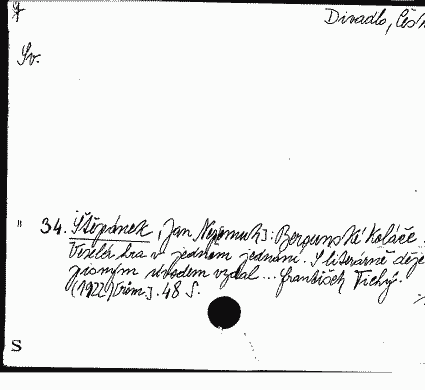 Divadlo, Čes
Sv.
" 34. Štěpánek, Jan Nepomuk]: Berounské koláče.
Veselá hra v jednom jednání. S literárně děje
pisným úvodem vydal ... František Tichý.
(1922) 48 S.
S